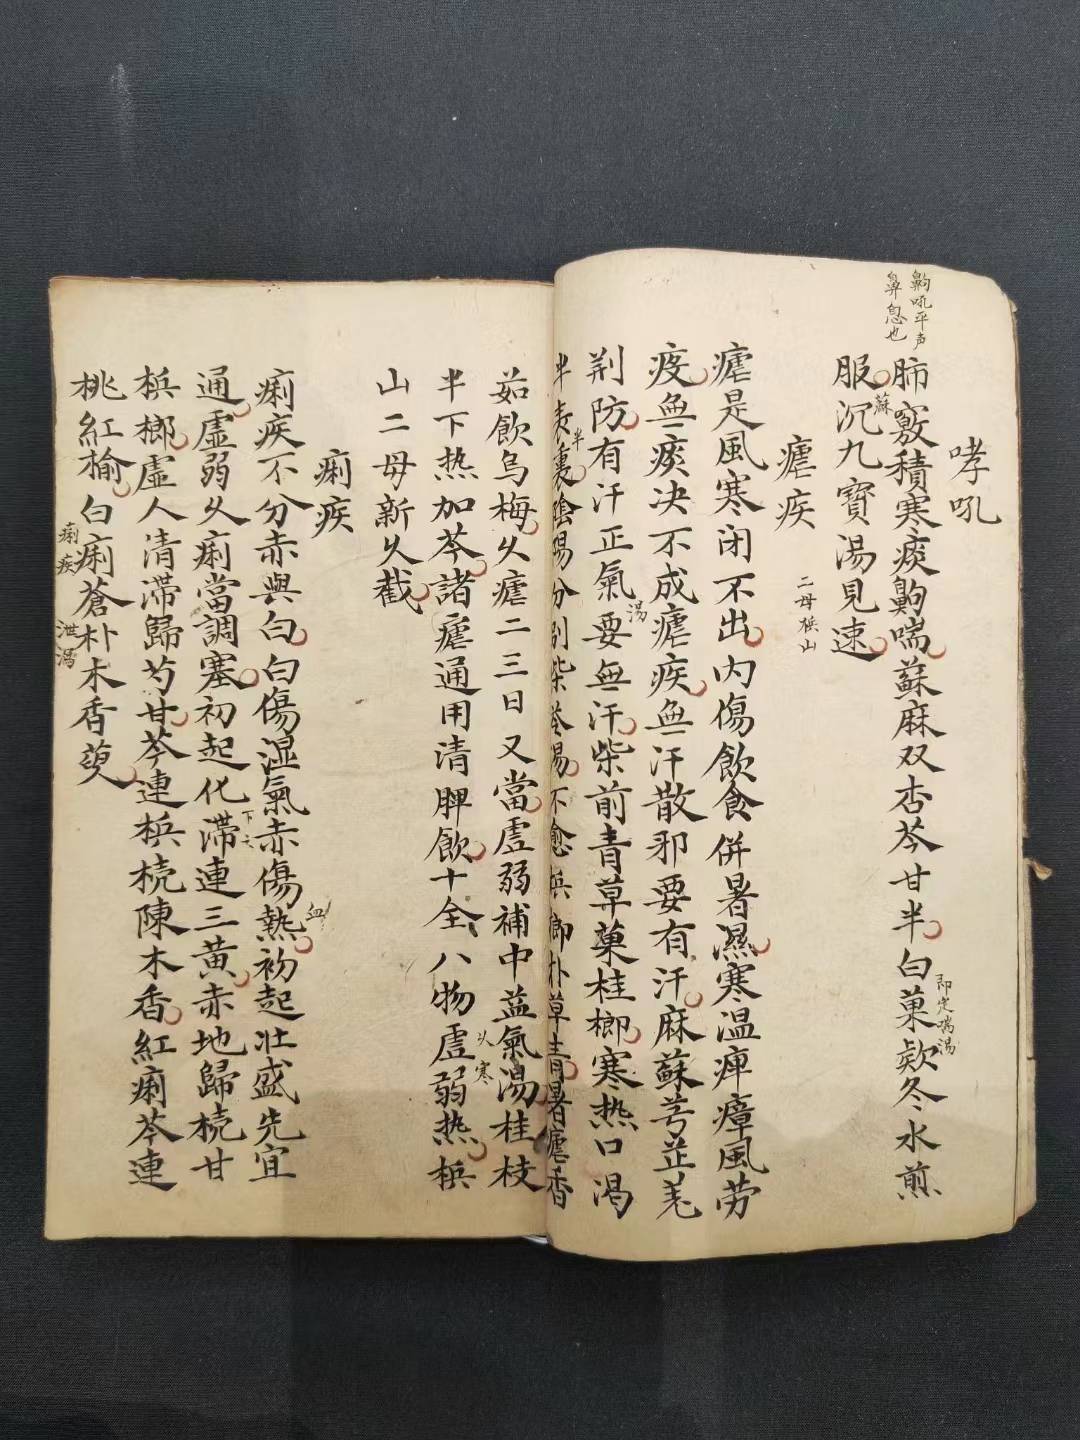 哮吼
齁吼平声
鼻息也
肺竅積寒痰齁喘蘇麻双杏芩甘半白菓欵冬水煎
即定喘湯
服沉九寶湯見速
蘇
瘧疾
二母梹山
瘧是風寒閉不出内傷飲食併暑濕寒温痺瘴風劳
疫無痰决不成瘧疾無汗散邪要有汗麻蘇芎芷羌
荆防有汗正氣要無汗柴前青草菓桂榔寒热口渴
湯
半表裏陰陽分别柴苓湯不愈梹榔朴草青暑瘧香
半
茹飲烏梅久瘧二三日又當虚弱補中益氣湯桂枝
半下热加芩諸瘧通用清脾飲十全八物虚弱热梹
久寒
山二母新久截
痢疾
痢疾不分赤與白白傷湿氣赤傷熱初起壯盛先宜
血
通虚弱久痢當調塞初起化滞連三黄赤地歸梹甘
下之
梹榔虚人清滞歸芍甘芩連梹桡陳木香紅痢芩連
桃紅榆白痢蒼朴木香萸
痢疾 泄瀉